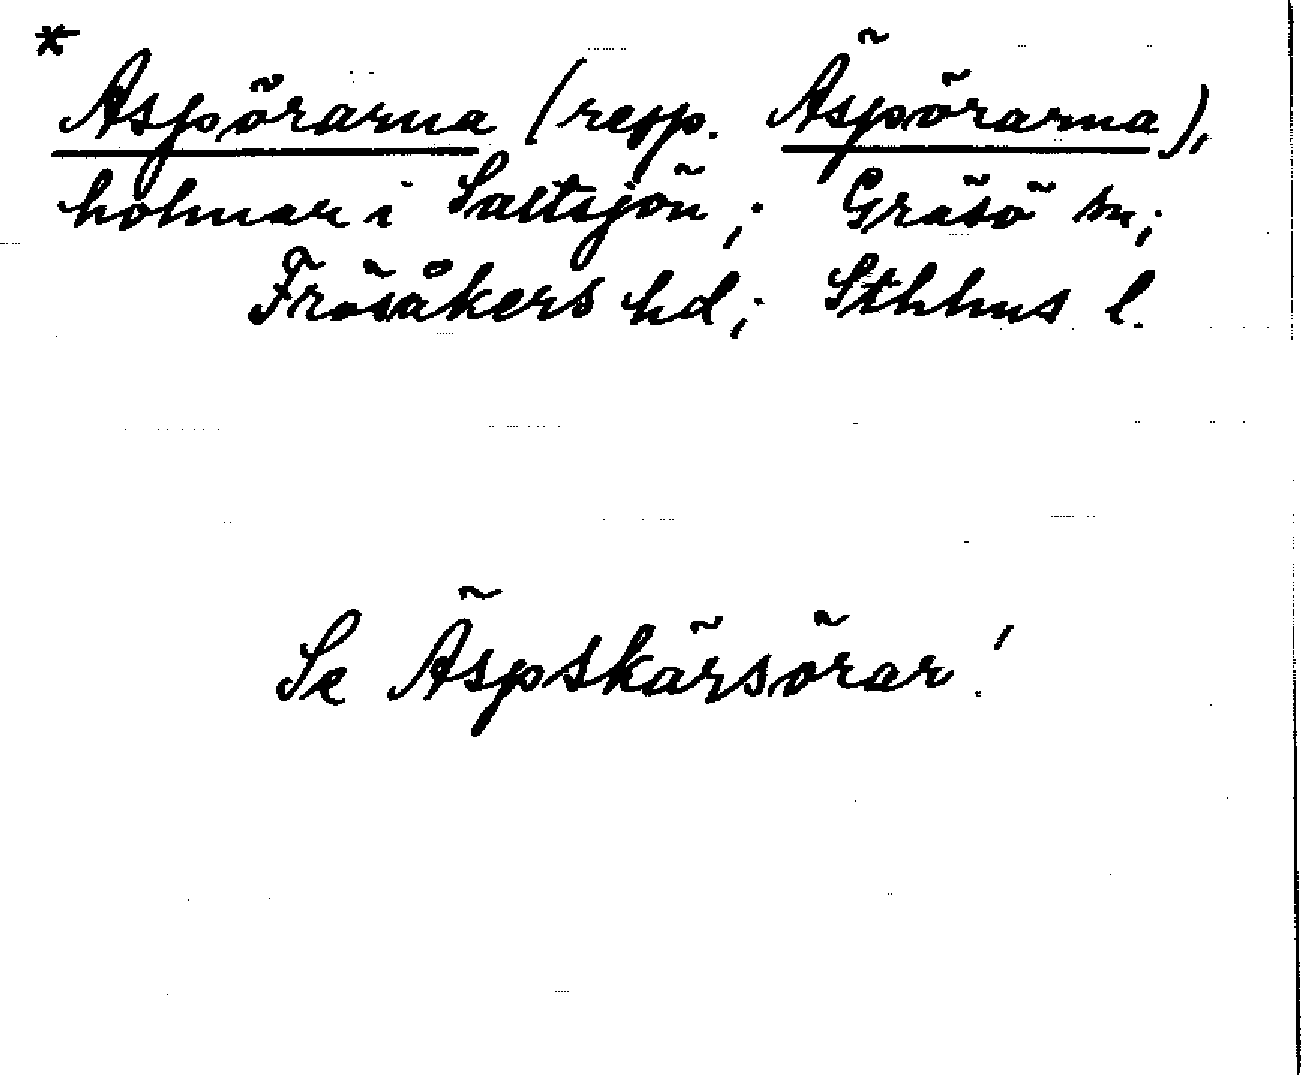 *
Aspörarna (repp. Äspörarna),
holmar i Saltsjön; Gräsö sn;
Frösåkers hd; Sthlms l.
Se Äspskärsörar!